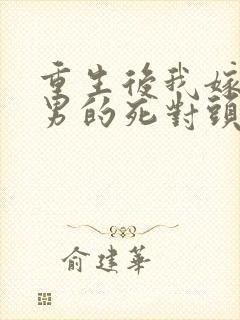 重生後我嫁
男的死對頭
俞建華